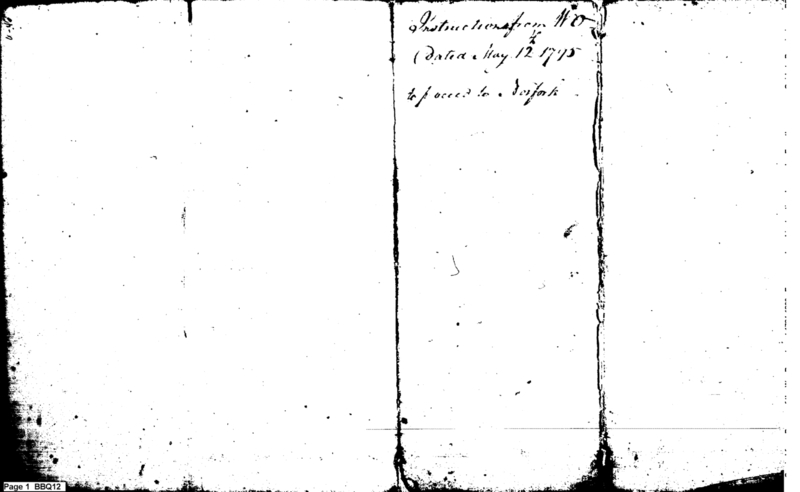 Instructions from W O
(Dated May 12th 1795
to proceed to Norfolk
Page 1 BBQ12